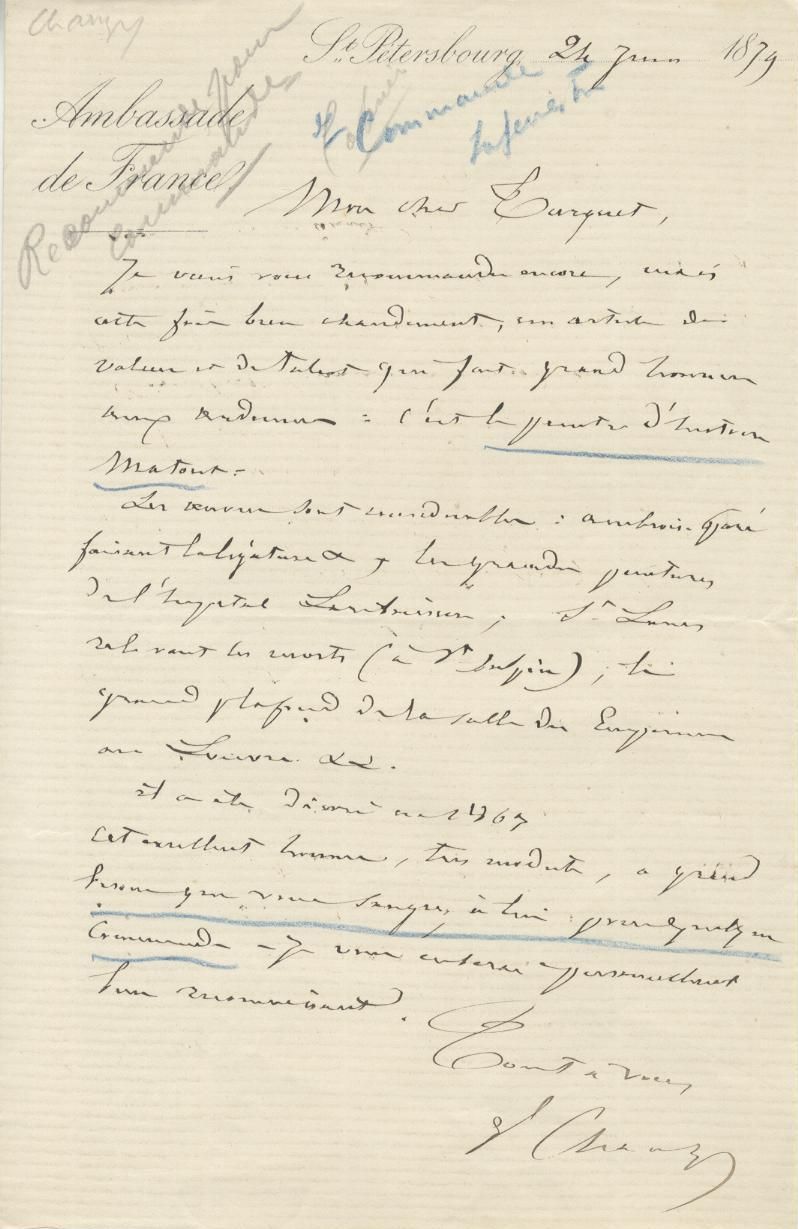 Chanzy
St Pétersbourg, 24 juin 1879
Ambassade
de France
Recommandé pour
Commande
Commande
Mon cher Turquet,
Je viens vous recommander encore, mais
cette fois bien chaudement, un artiste de
valeur et de talent qui fait grand honneur
aux Ardennes = c'est le peintre d'histoire
Matout =
Ses œuvres sont considérables : Ambroise Paré
faisant la ligature &, les grandes peintures
de l'hôpital Lariboisière ; St
relevant les morts (à St Sulpice) ; le
grand plafond de la salle des Empereurs
au Louvre &&.
Il a été décoré en 1867
Cet excellent homme, très modeste, a grand
besoin que vous songiez à lui pour quelque
Commande - Je vous en serai personnellement
bien reconnaissant.
Tout à vous,
Chanzy